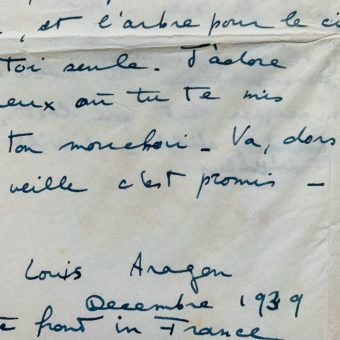 , et l'arbre pour le ci
toi seule. J'adore
eux où tu te mis
ton mouchoir - Va, dors
veille c'est promis -
Louis Aragon
Decembre 1939
front in France